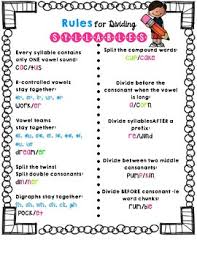 Rules for Dividing
SYLLABLES
Every syllable contains
only ONE vowel sound:
cac/tus
R-controlled vowels
stay together:
ar, er, ir, or, ur
work/er
Vowel teams
stay together:
dream/er
Split the twins!
Split double consonants:
Digraphs stay together:
pock/et
Split the compound words:
cup/cake
Divide before the
consonant when the vowel
is long:
a/corn
Divide syllables AFTER a
prefix:
re/wind
Divide between two middle
consonants:
pump/kin
Divide BEFORE consonant -le
word chunks:
rum/ble